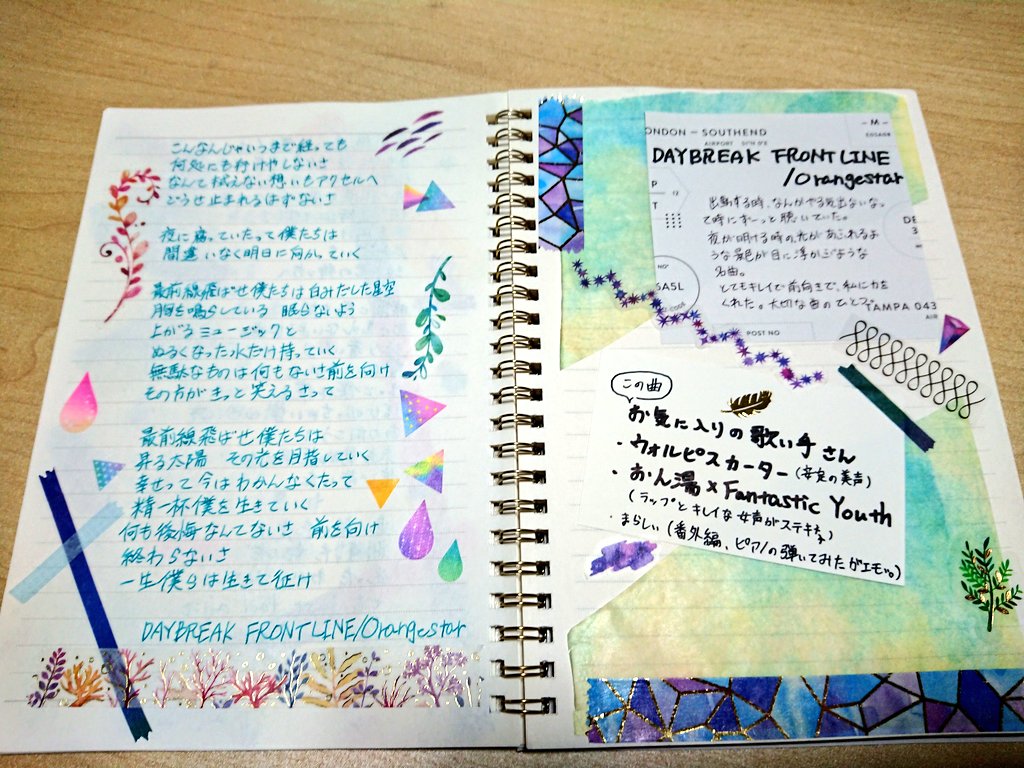 こんなんじゃいつまで経っても
何処にも行けやしないさ
なんて拭えない想いもアクセルへ
どうせ止まれるはずないさ
夜に腐っていたって僕たちは
間違いなく明日に向かっていく
最前線飛ばせ僕たちは白みだした星空
胸を鳴らしている 眠らないよう
上がるミュージックと
ぬるくなった水だけ持っていく
無駄なものは何もないさ前を向け
その方がきっと笑えるさって
最前線飛ばせ僕たちは
昇る太陽 その光を目指していく
幸せって今はわかんなくたって
精一杯僕を生きていく
何も後悔なんてないさ 前を向け
終わらないさ
一生僕らは生きて征け
DAYBREAK FRONTLINE/Orangestar
ONDON – SOUTHEND
– M –
AIRPORT
DAYBREAK FRONTLINE
/Orangestar
出勤する時、なんかやる気出ないなっ
て時にずーっと聴いていた。
夜が明ける時の光があふれるよ
うな景色が目に浮かぶような
名曲。
とてもキレイで前向きで、私に力を
くれた。大切な曲のひとつ。
GASL
TAMPA 043
AIR
POST NO
この曲
お気に入りの歌い手さん
・ウォルピスカーター(安定の美声)
・おん湯×Fantastic Youth
(ラップとキレイな女声がステキ)
・まらしぃ(番外編、ピアノの弾いてみたがエモい。)